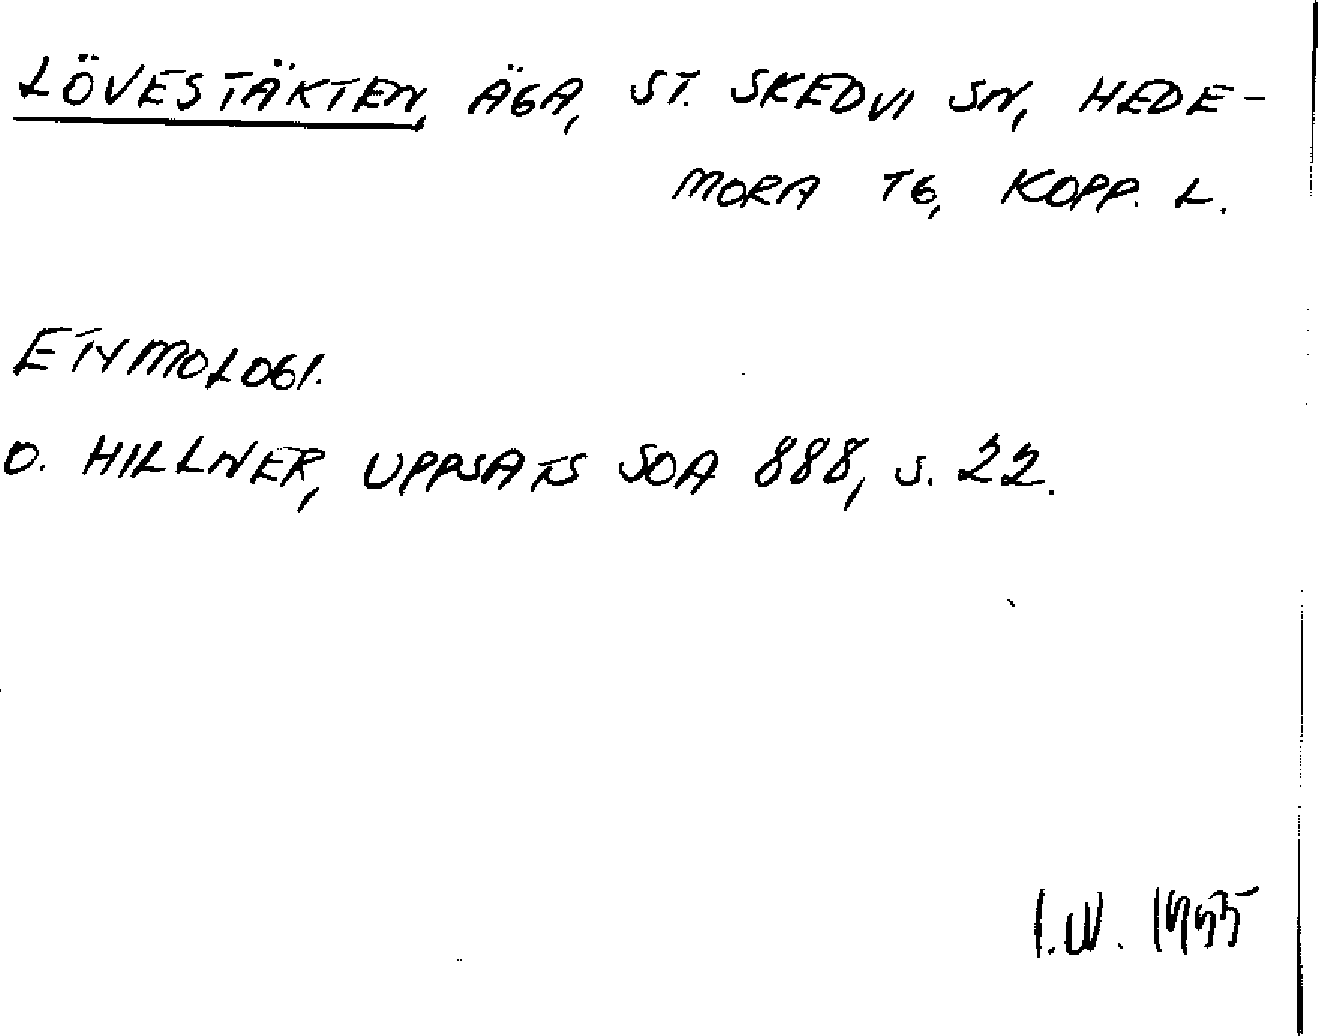 LÖVESTÄKTEN, ÄGA, ST. SKEDVI SN, HEDE-
MORA TG, KOPP. L.
ETYMOLOGI.
O. HILLNER, UPPSATS SOA 888, S. 22.
I.W. 1955